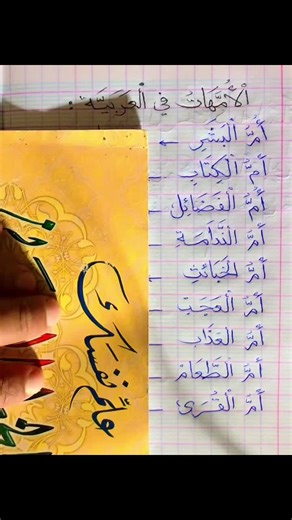 الْأُمَّهَاتُ في الْعَرَبِيَّة :
أُمُّ الْبَشَرِ
أُمُّ الْكِتَابِ
أُمُّ الْفَضَائِلِ
أُمُّ النَّدَامَةِ
أُمُّ الْخَبَائِثِ
أُمُّ الْعَجَبِ
أُمُّ الْعَذَابِ
أُمُّ الطَّعَامِ
أُمُّ الْقُرَى
علّم نفسك